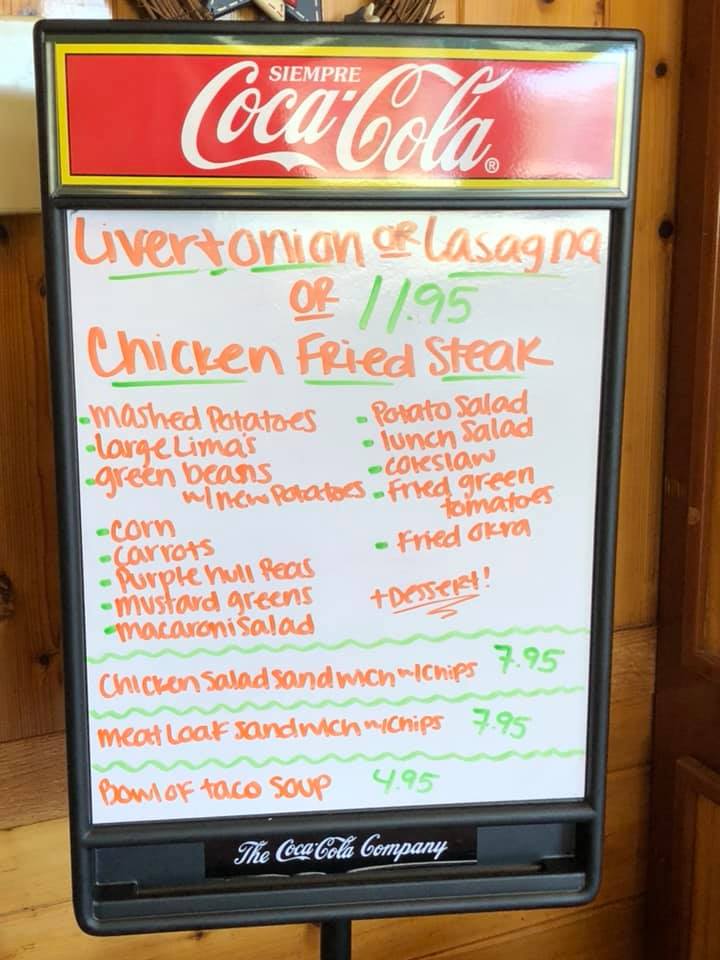 SIEMPRE
Coca-Cola®
Liver+onion OR Lasagna
OR 11.95
Chicken Fried Steak
-mashed Potatoes
-large Lima's
-green beans
w/ new Potatoes
-corn
-carrots
-Purple hull Peas
-mustard greens
-macaroni Salad
- Potato Salad
- lunch Salad
-coleslaw
-fried green
tomatoes
- Fried okra
+Dessert!
Chicken Salad Sandwich w/chips 7.95
meat Loaf Sandwich w/chips 7.95
Bowl of taco Soup 4.95
The Coca-Cola Company